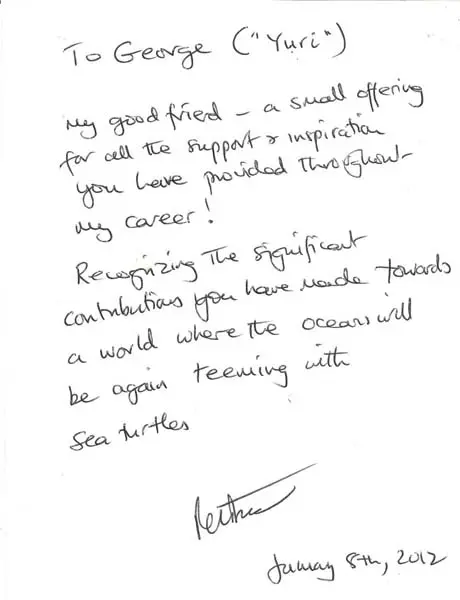 To George ("Yuri")
My good fried – a small offering
for all the support & inspiration
you have provided throughout
my career!
Recognizing the significant
contributions you have made towards
a world where the oceans will
be again teeming with
sea turtles
January 8th, 2012